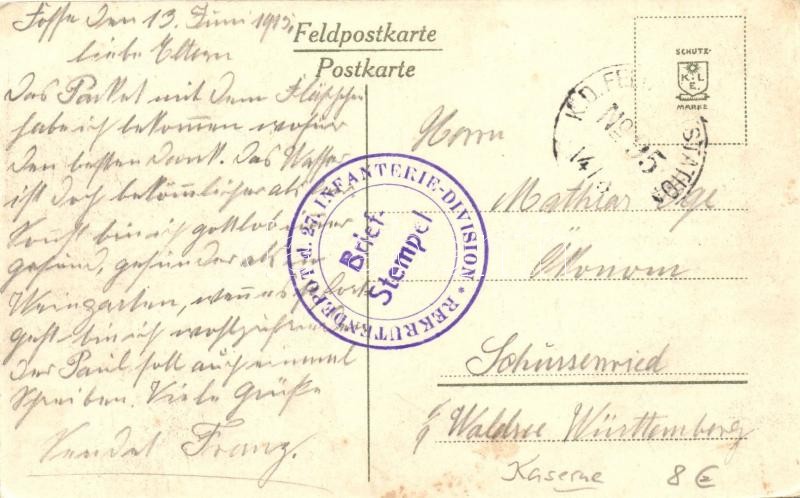 Fosse den 13. Juni 1915.
liebe Eltern
Das Packet mit dem Fläschchen
habe ich bekommen wofür
den besten Dank. Das Wasser
ist doch bekömmlicher als
Sonst bin ich gottlob immer
gesund, gesünder als in
Weingarten, wenn es so fort
geht bin ich wohlzufrieden
Der Paul soll auch einmal
Schreiben. Viele Grüße
Sendet Franz.
Feldpostkarte
Postkarte
SCHUTZ-
K.L.
E.
MARKE
K.D. FEL STATION
No 95
14/
REKRUTENDEPOT d. 27. INFANTERIE-DIVISION *
Brief-
Stempel
Herrn
Mathias
Ökonom
Schussenried
Waldsee Württemberg
Kaserne 8 €